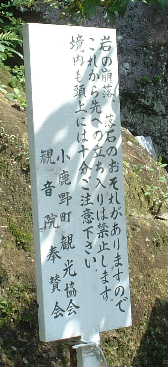 岩の崩落、落石のおそれがありますので
これから先への立ち入りは禁止します。
境内も頭上には十分ご注意下さい。
小鹿野町観光協会
観音院奉賛会